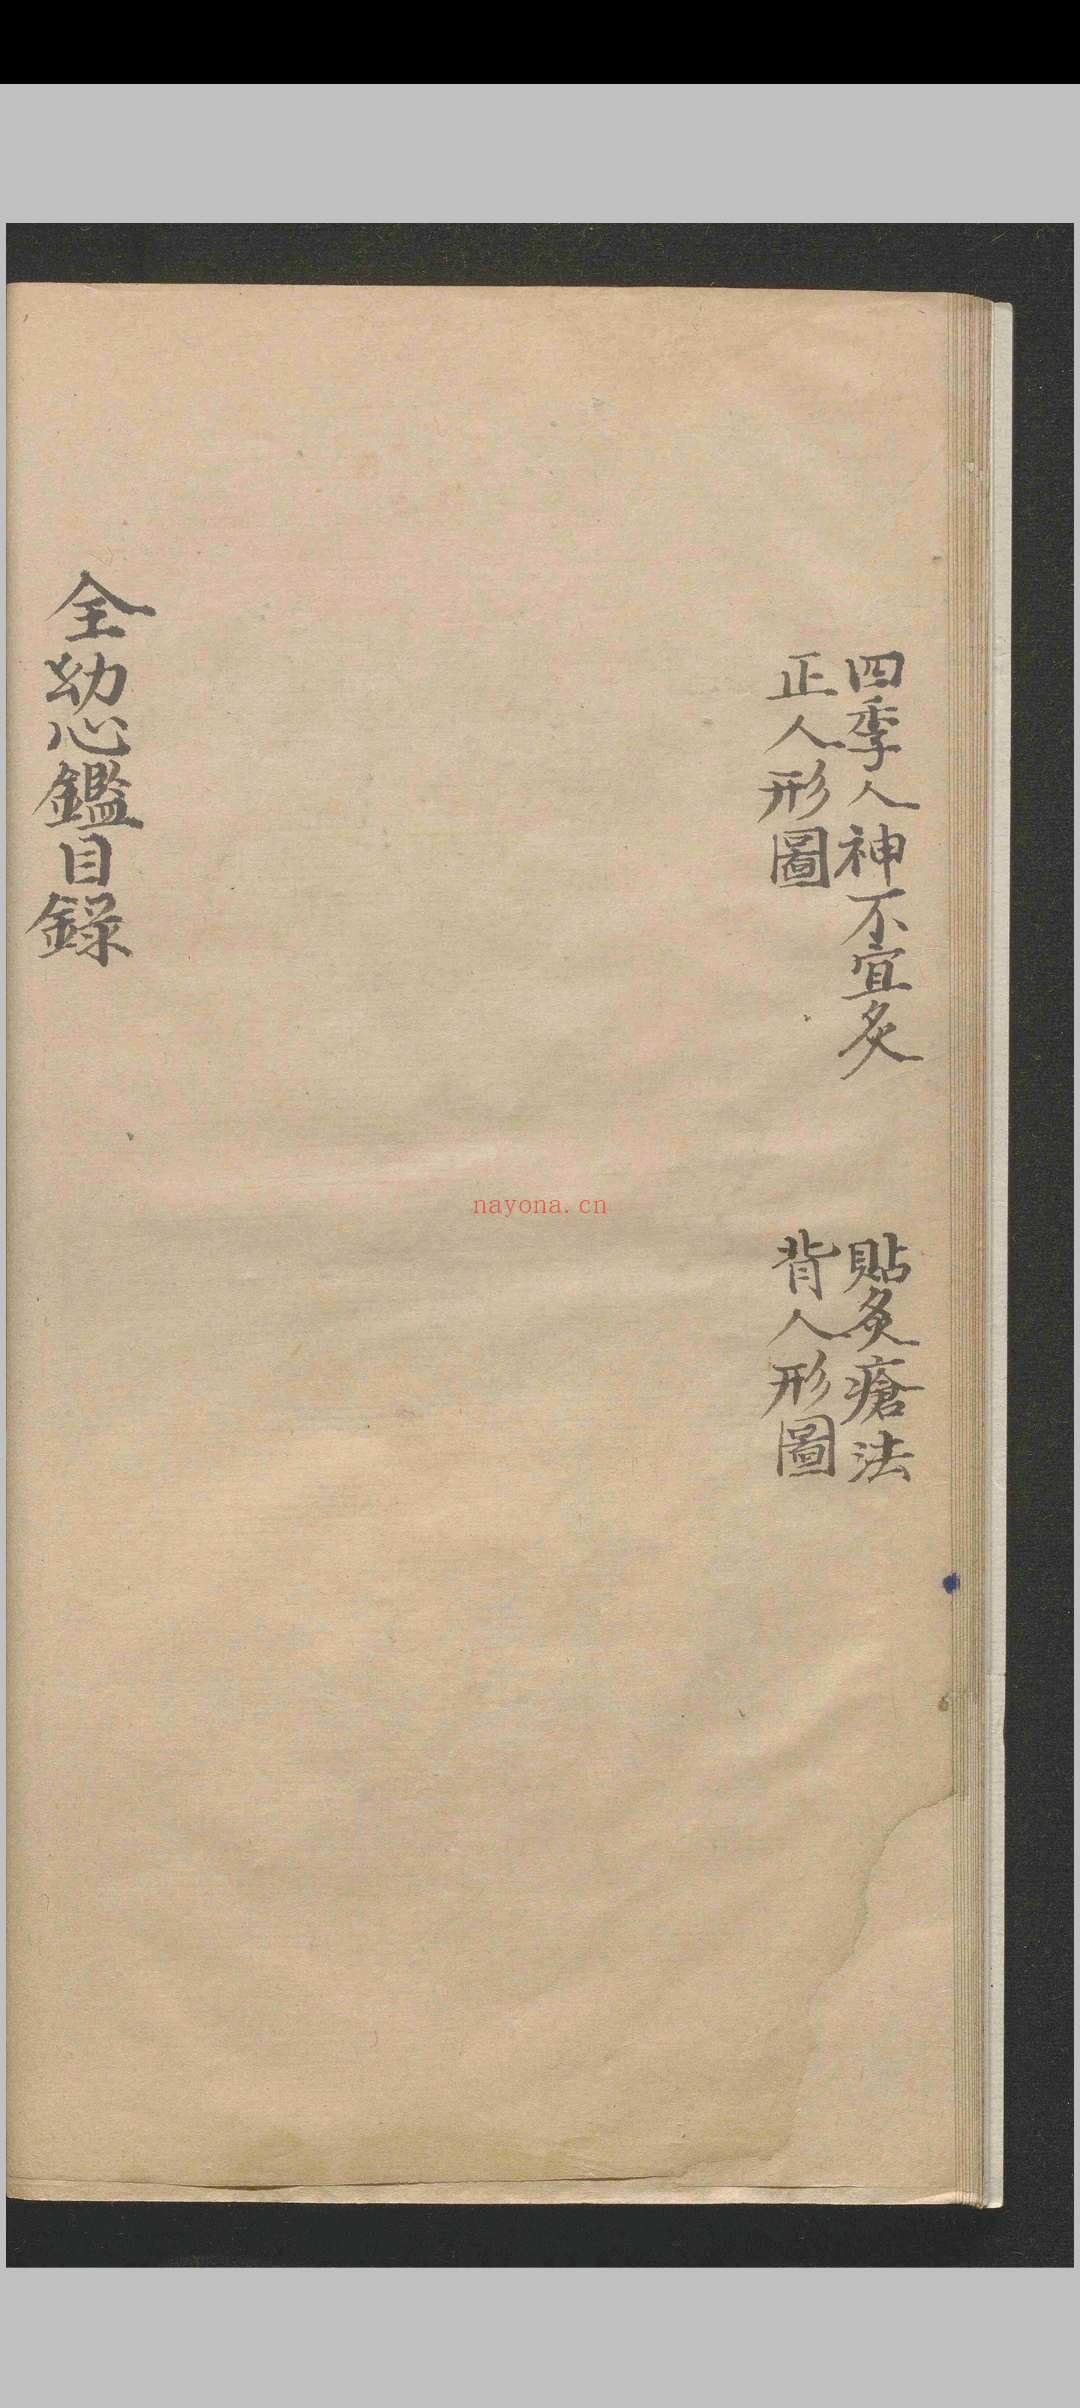 四季人神不宜灸
貼灸瘡法
正人形圖
背人形圖
全幼心鑑目錄
nayona.cn